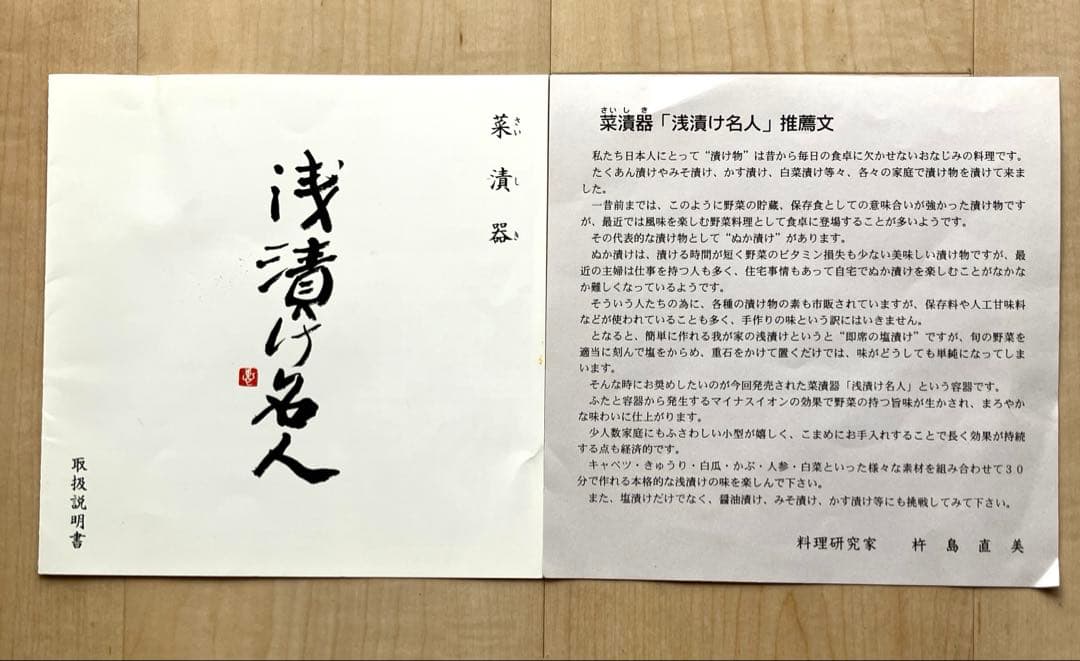 菜漬器
さいしき
浅漬け名人
取扱説明書
さいしき
菜漬器「浅漬け名人」推薦文
私たち日本人にとって“漬け物”は昔から毎日の食卓に欠かせないおなじみの料理です。
たくあん漬けやみそ漬け、かす漬け、白菜漬け等々、各々の家庭で漬け物を漬けて来ま
した。
一昔前までは、このように野菜の貯蔵、保存食としての意味合いが強かった漬け物です
が、最近では風味を楽しむ野菜料理として食卓に登場することが多いようです。
その代表的な漬け物として“ぬか漬け”があります。
ぬか漬けは、漬ける時間が短く野菜のビタミン損失も少ない美味しい漬け物ですが、最
近の主婦は仕事を持つ人も多く、住宅事情もあって自宅でぬか漬けを楽しむことがなかな
か難しくなっているようです。
そういう人たちの為に、各種の漬け物の素も市販されていますが、保存料や人工甘味料
などが使われていることも多く、手作りの味という訳にはいきません。
となると、簡単に作れる我が家の浅漬けというと“即席の塩漬け”ですが、旬の野菜を
適当に刻んで塩をからめ、重石をかけて置くだけでは、味がどうしても単純になってしま
います。
そんな時にお奨めしたいのが今回発売された菜漬器「浅漬け名人」という容器です。
ふたと容器から発生するマイナスイオンの効果で野菜の持つ旨味が生かされ、まろやか
な味わいに仕上がります。
少人数家庭にもふさわしい小型が嬉しく、こまめにお手入れすることで長く効果が持続
する点も経済的です。
キャベツ・きゅうり・白瓜・かぶ・人参・白菜といった様々な素材を組み合わせて30
分で作れる本格的な浅漬けの味を楽しんで下さい。
また、塩漬けだけでなく、醤油漬け、みそ漬け、かす漬け等にも挑戦してみて下さい。
料理研究家 杵島直美